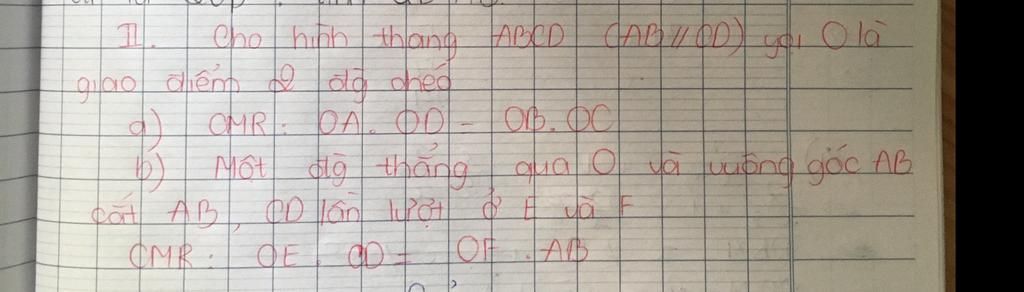 II. Cho hình thang ABCD (AB // CD) gọi O là
giao điểm 2 đg chéo
a) CMR: OA. OD = OB. OC
b) Một đg thẳng qua O và vuông góc AB
cắt AB, CD lần lượt ở E và F
CMR: OE. CD = OF. AB